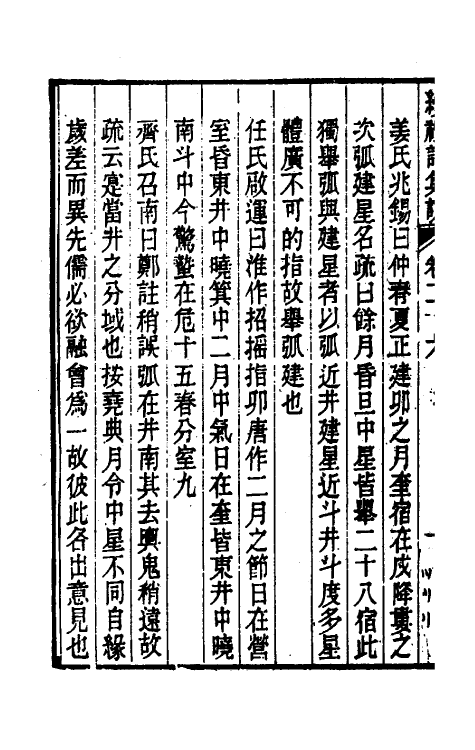 姜氏兆錫曰仲春夏正建卯之月奎宿在戌降婁之
次弧建星名疏曰餘月昏旦中星皆舉二十八宿此
獨舉弧與建星者以弧近井建星近斗井斗度多星
體廣不可的指故舉弧建也
任氏啟運曰淮作招搖指卯唐作二月之節日在營
室昏東井中曉箕中二月中氣日在奎皆東井中曉
南斗中今驚蟄在危十五春分室九
齊氏召南曰鄭註稍誤弧在井南其去輿鬼稍遠故
疏云寔當井之分域也按堯典月令中星不同自緣
歲差而異先儒必欲融會為一故彼此各出意見也